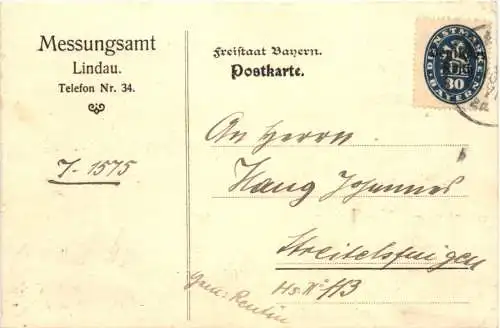 Messungsamt
Lindau.
Telefon Nr. 34.
J. 1575
Freistaat Bayern.
Postkarte.
DIENSTMARKE
30
BAYERN
An Herrn
Haug Johannes
Streitelsfingen
Hs № 113
Gem: Reutin